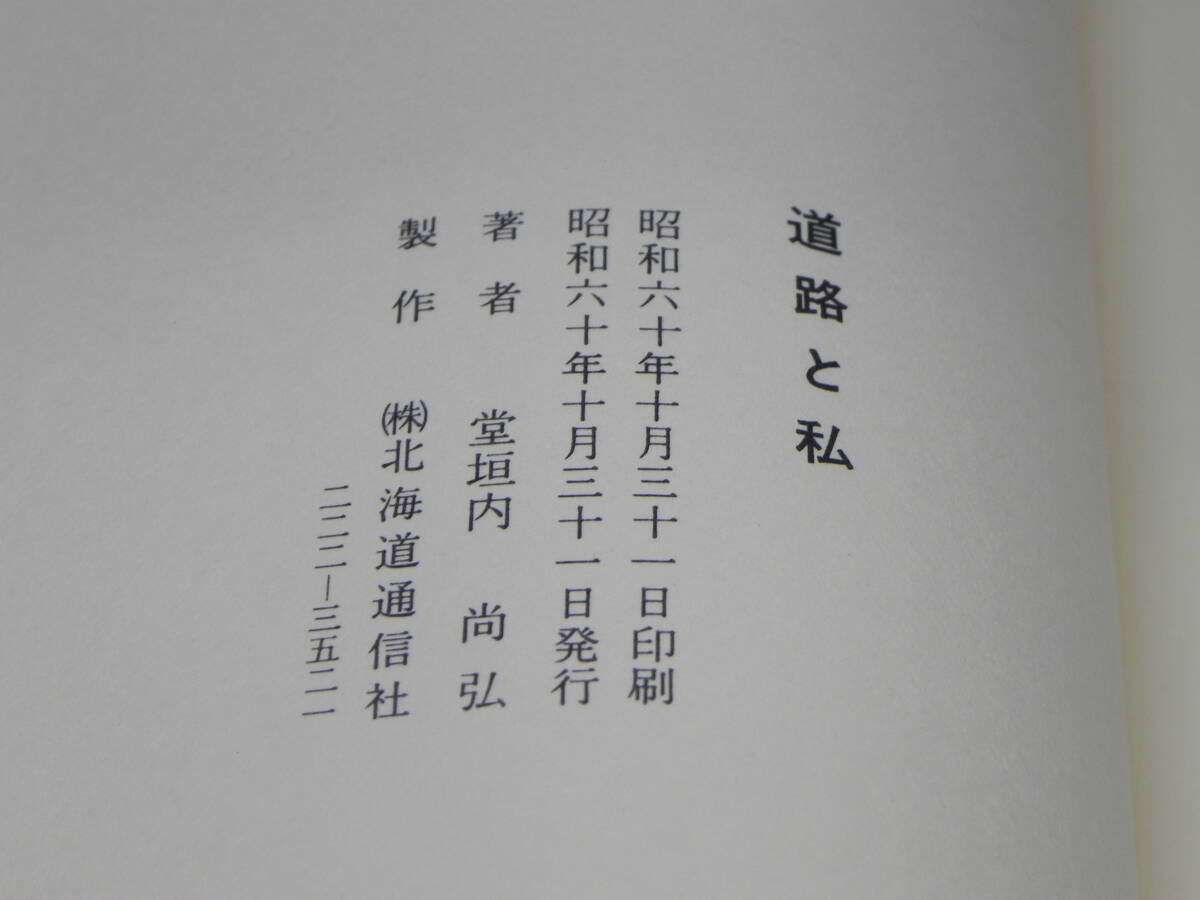 道路と私
昭和六十年十月三十一日印刷
昭和六十年十月三十一日発行
著者 堂垣内 尚弘
製作 ㈱北海道通信社
二二二―三五二一